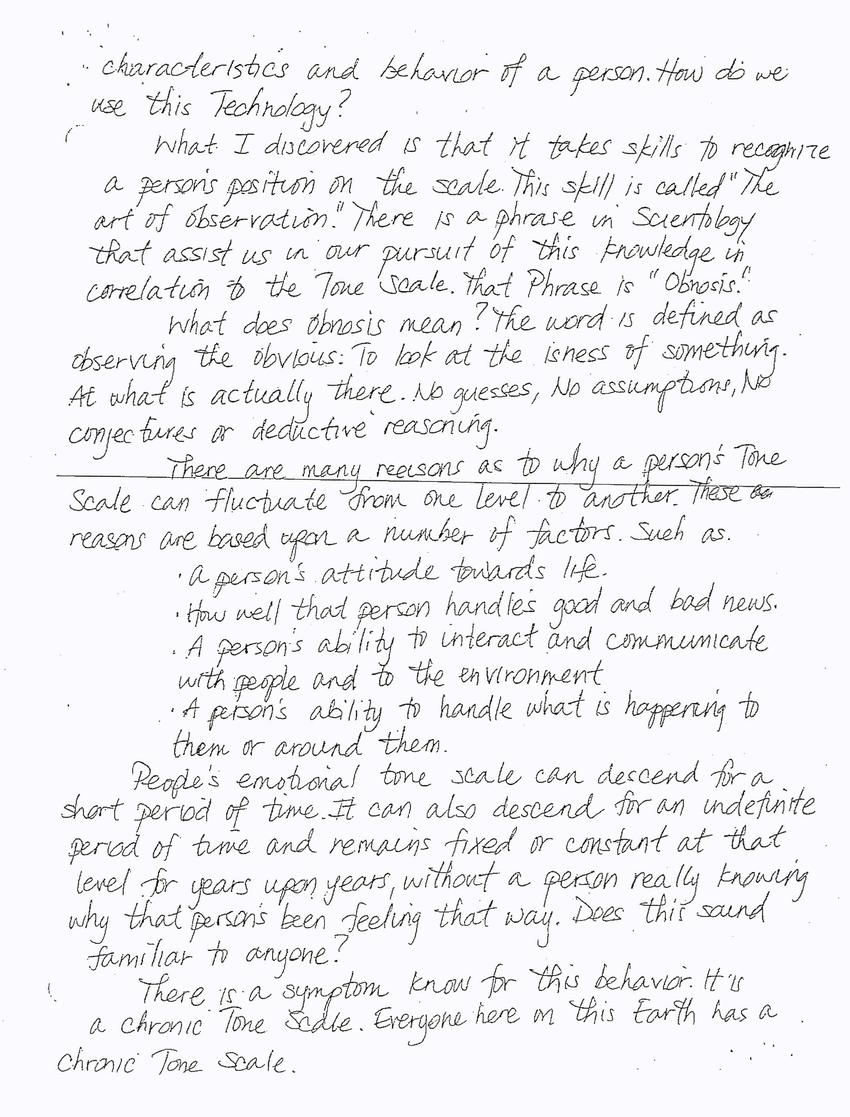 characteristics and behavior of a person. How do we
use this Technology?
What I discovered is that it takes skills to recognize
a person's position on the scale. This skill is called "The
art of observation." There is a phrase in Scientology
that assist us in our pursuit of this knowledge in
correlation to the Tone Scale. That Phrase is "Obnosis."
What does obnosis mean? The word is defined as
observing the obvious: To look at the isness of something.
At what is actually there. No guesses, No assumptions, No
conjectures or deductive reasoning.
There are many reeisons as to why a person's Tone
Scale can fluctuate from one level to another. These
reasons are based upon a number of factors. Such as.
· A person's attitude towards life.
· How well that person handles good and bad news.
· A person's ability to interact and communicate
with people and to the environment
· A person's ability to handle what is happening to
them or around them.
People's emotional tone scale can descend for a
short period of time. It can also descend for an indefinite
period of time and remains fixed or constant at that
level for years upon years, without a person really knowing
why that person's been feeling that way. Does this sound
familiar to anyone?
There is a symptom know for this behavior. It is
a chronic Tone Scale. Everyone here on this Earth has a
chronic Tone Scale.